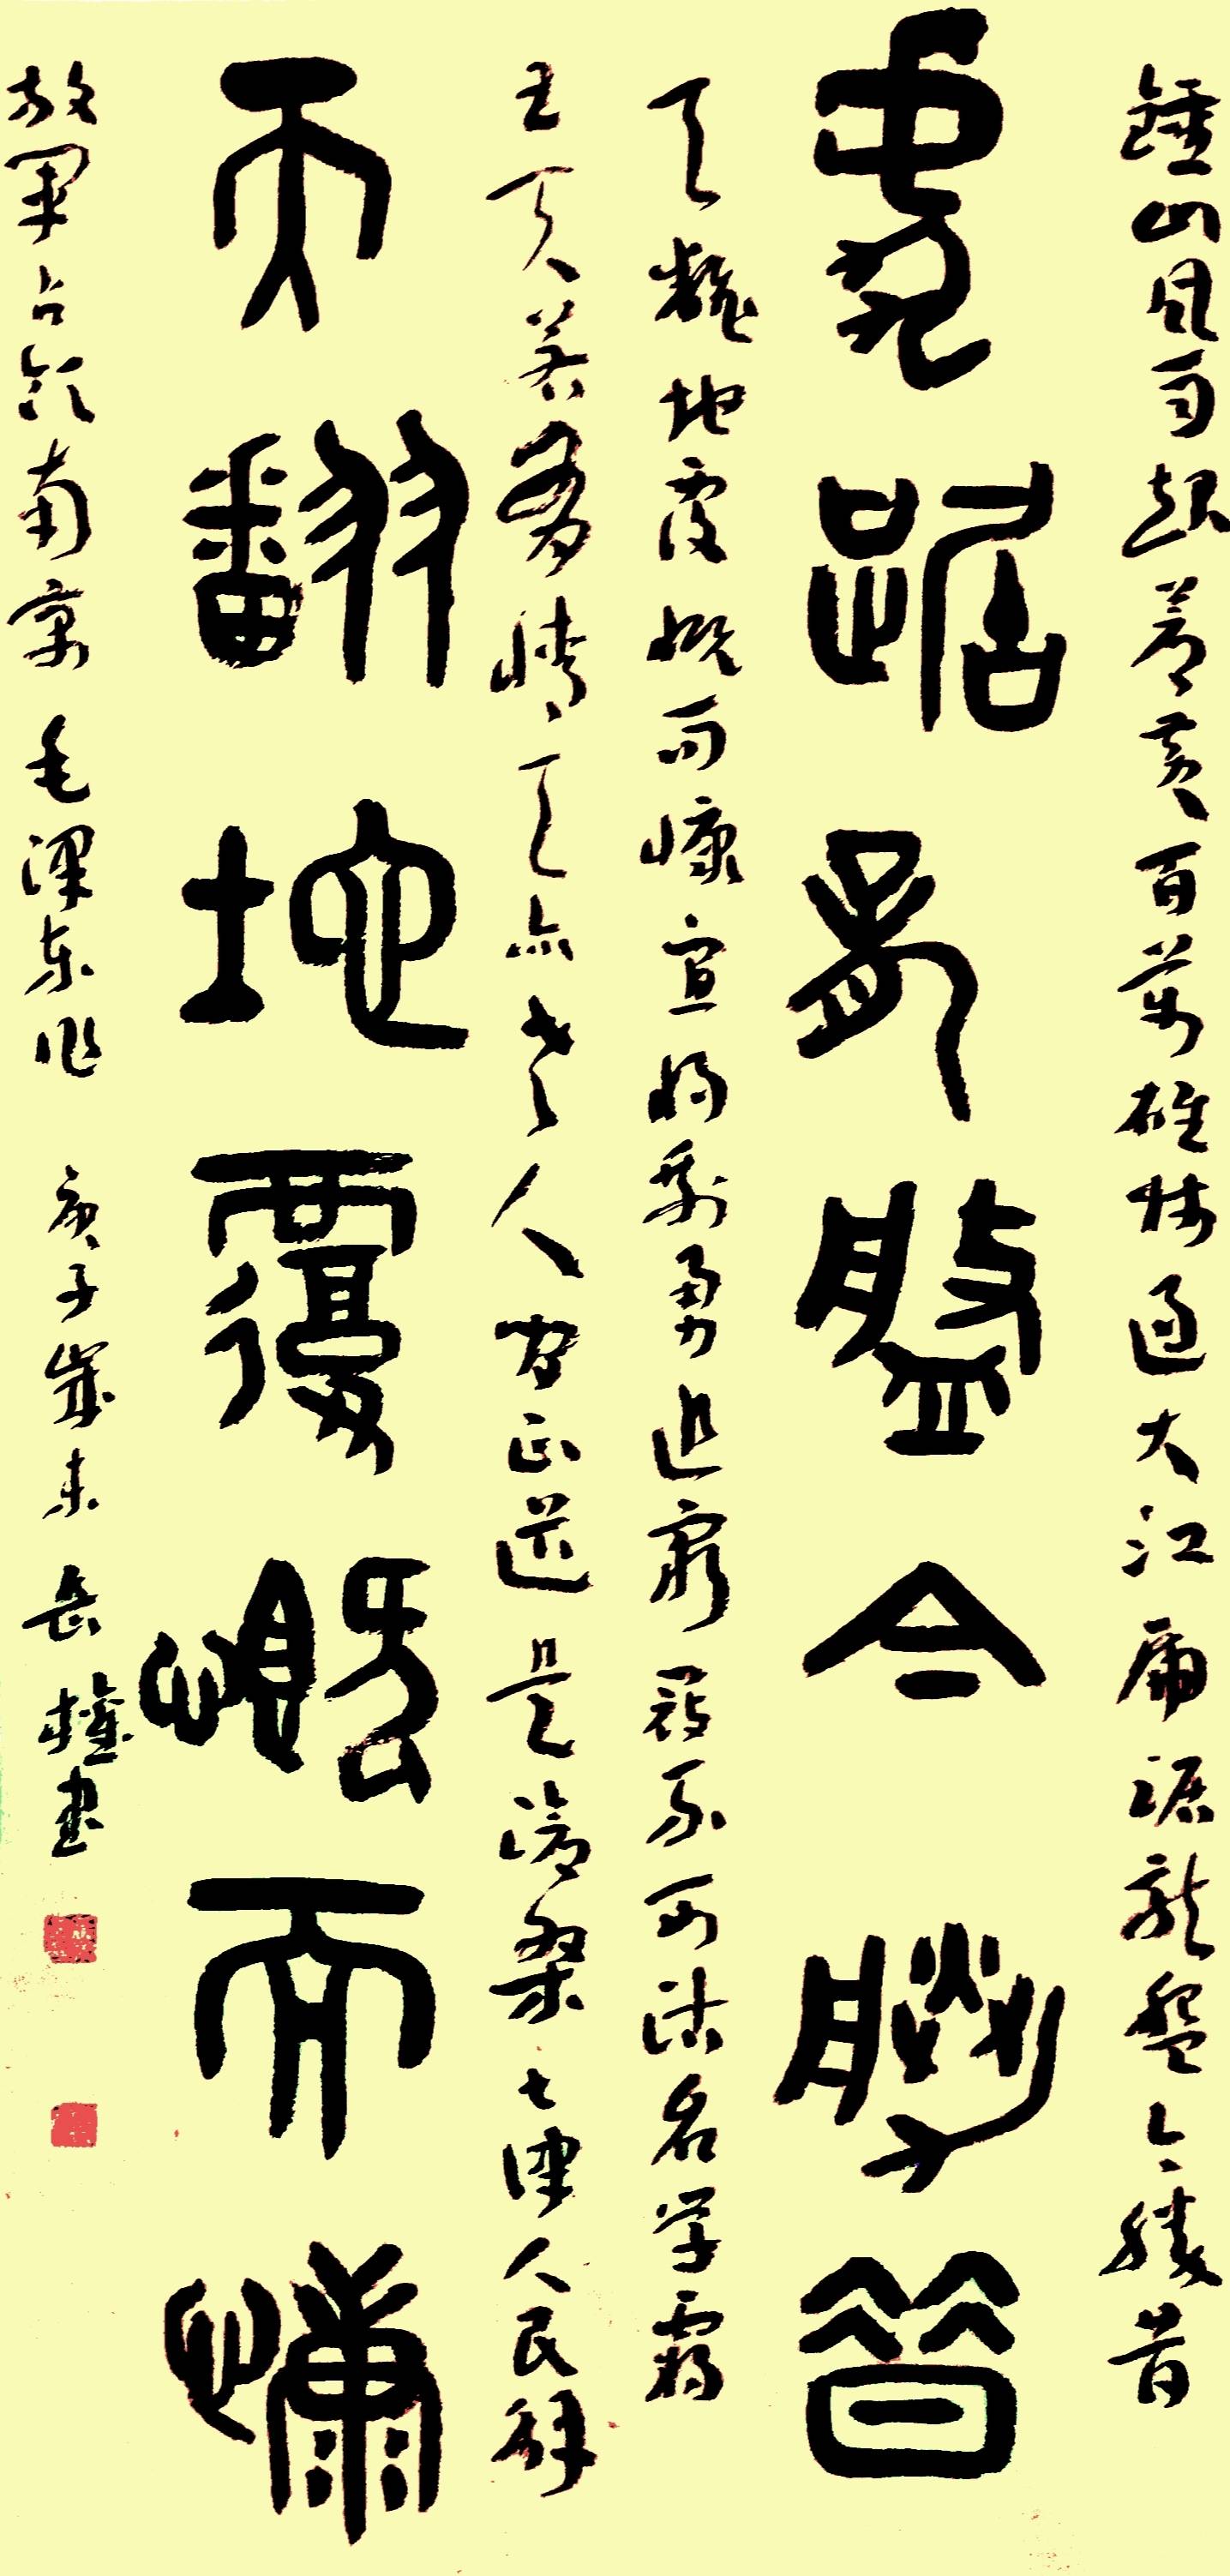 鍾山風雨起蒼黃百萬雄師過大江虎踞龍盤今勝昔
虎踞龍盤今勝昔
天翻地覆慨而慷宜將剩勇追窮寇不可沽名學霸
王天若有情天亦老人間正道是滄桑七律人民解
天翻地覆慨而慷
放軍占領南京 毛澤東作 庚子歲末 岳權書